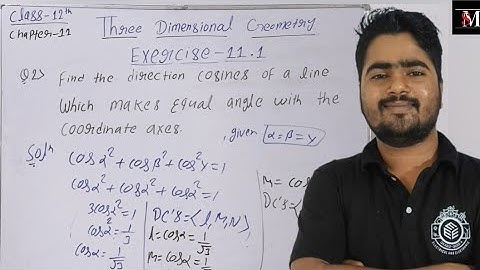 Class-12th
Chapter-11
Three Dimensional Geometry
Exercise-11.1
Q2> Find the direction cosines of a line
which makes equal angle with the
coordinate axes.
, given α=β=γ
Solⁿ
cosα²+cosβ²+cos²γ=1
cosα²+cosα²+cosα²=1
3cosα²=1
cosα²=1/3
cosα=1/√3
DC'S=<l,M,N>
l=cosα=1/√3
m=cosα=1/√3
M=cos
DC'S=<
M